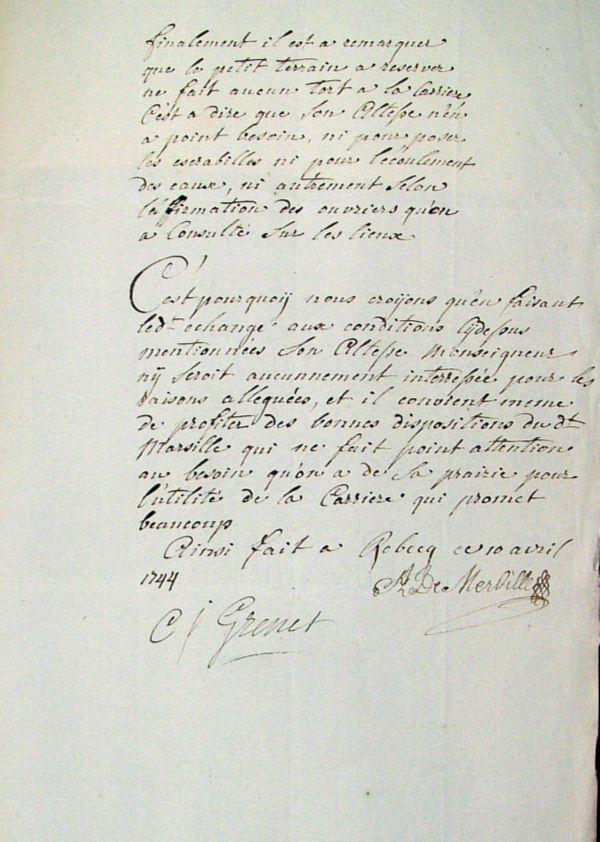 finalement il est a remarquer
que le petit terrain a reserver
ne fait aucun tort a la carriere
C'est a dire que son Altesse n'en
a point besoin, ni pour poser
les escrabilles ni pour l'ecoulement
des eaux, ni autrement selon
l'éffirmation des ouvriers qu'on
a Consulté sur les lieux
C'est pourquoÿ nous croÿons qu'en faisant
led.t echange aux conditions cÿdessus
mentionnées Son Altesse Monseigneur
nÿ seroit aucunnement interressée pour les
raisons alleguées, et il convient meme
de profiter des bonnes dispositions du d.t
Marsille qui ne fait point attention
au besoin qu'on a de sa prairie pour
l'utilité de la Carriere qui promet
beaucoup
Ainsi fait a Rebecq ce 10 avril
1744 De Merville
C J Grenet